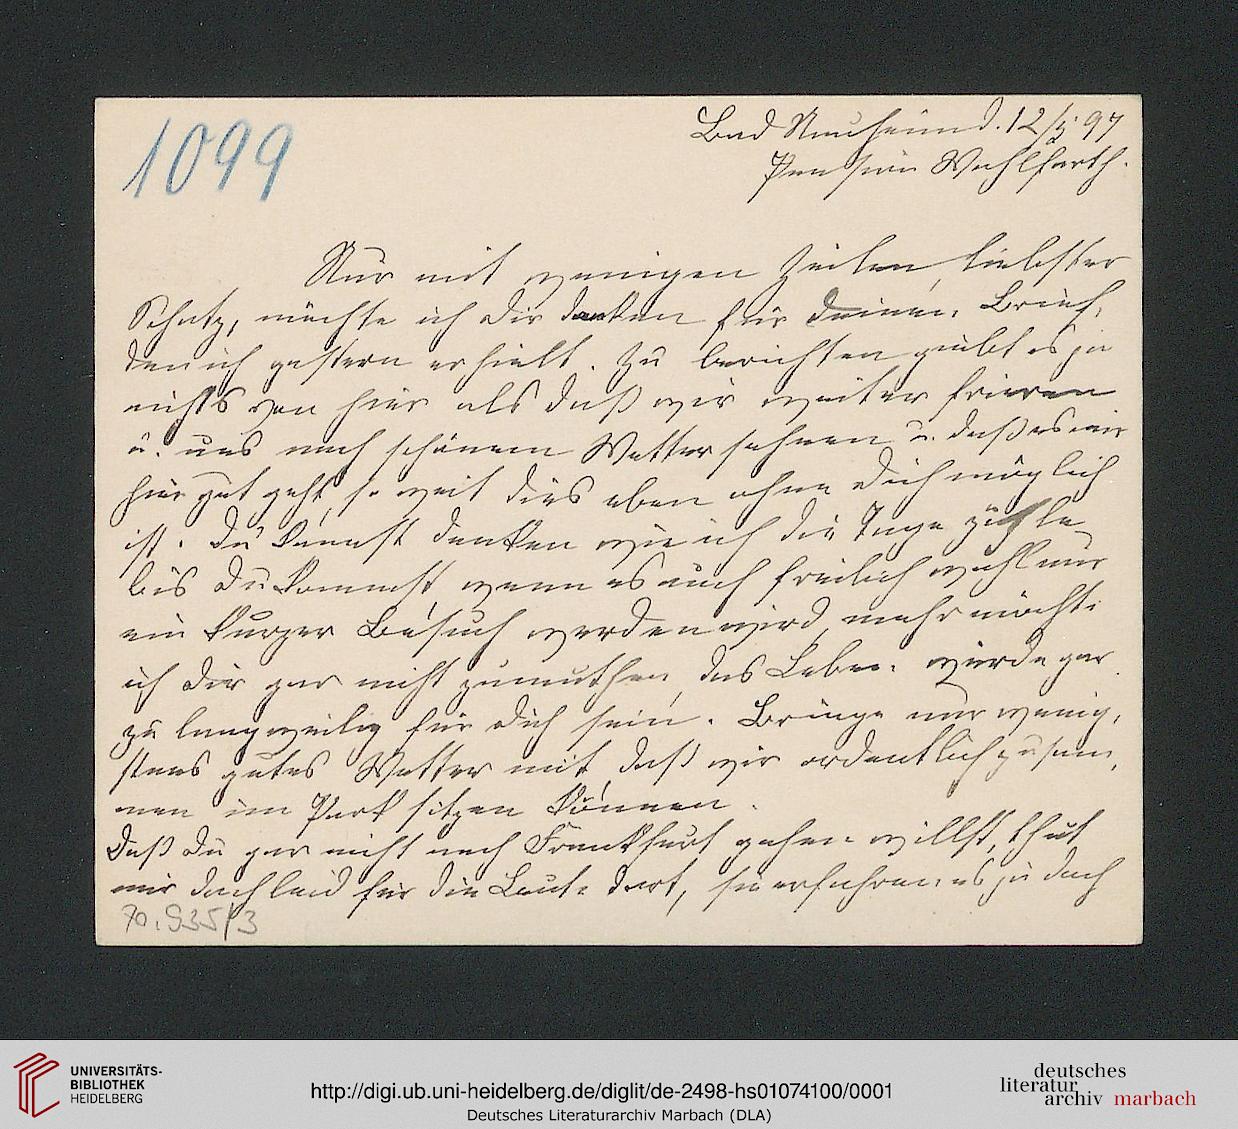 1099
Bad Nauheim d. 12/5 97
Pension Wohlfarth.
Nur mit wenigen Zeilen liebster
Schatz, möchte ich Dir danken für Deinen Brief,
den ich gestern erhielt. Zu berichten giebt es ja
nichts von hier als daß wir weiter frieren
u. uns nach schönem Wetter sehnen u. daß es mir
hier gut geht, so weit dies eben ohne Dich möglich
ist. Du kannst denken wie ich die Tage zähle
bis Du kommst, wenn es auch freilich wohl nur
ein kurzer Besuch werden wird, mehr möchte
ich Dir gar nicht zumuthen, das Leben würde gar
zu langweilig für Dich sein. Bringe nur wenig,
stens gutes Wetter mit, daß wir ordentlich zusam,
men im Park sitzen können.
Daß Du gar nicht nach Frankfurt gehen willst, thut
mir doch leid für die Leute dort, sie erfahren es ja doch
70.935/3
UNIVERSITÄTS-
BIBLIOTHEK
HEIDELBERG
http://digi.ub.uni-heidelberg.de/diglit/de-2498-hs01074100/0001
Deutsches Literaturarchiv Marbach (DLA)
deutsches
literatur
archiv marbach